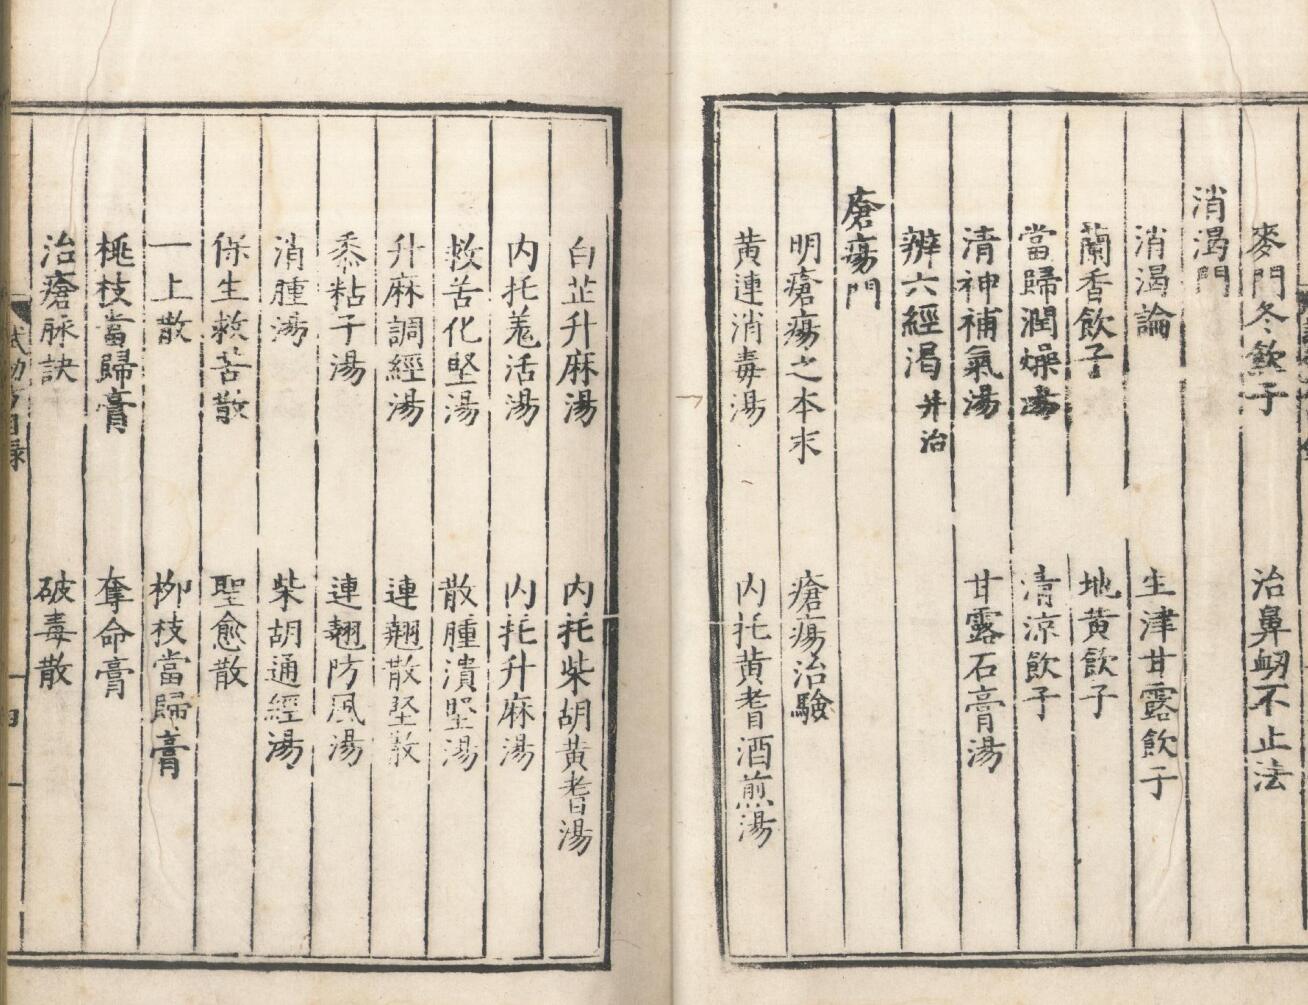 麥門冬飲子　治鼻衂不止法
消渴門
消渴論　生津甘露飲子
蘭香飲子　地黄飲子
當歸潤燥湯　清涼飲子
清神補氣湯　甘露石膏湯
辨六經渴并治
瘡瘍門
明瘡瘍之本末　瘡瘍治驗
黄連消毒湯　内托黄耆酒煎湯
白芷升麻湯　内托柴胡黄耆湯
内托羗活湯　内托升麻湯
救苦化堅湯　散腫潰堅湯
升麻調經湯　連翹散堅散
黍粘子湯　連翹防風湯
消腫湯　柴胡通經湯
保生救苦散　聖愈散
一上散　柳枝當歸膏
桃枝當歸膏　奪命膏
治瘡脉訣　破毒散
試効方目録　四